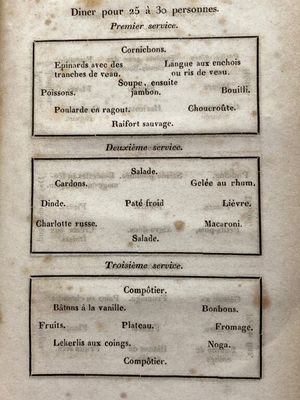 Diner pour 25 à 30 personnes.
Premier service.
Cornichons.
Epinards avec des tranches de veau.
Langue aux enchois ou ris de veau.
Poissons.
Soupe, ensuite jambon.
Bouilli.
Poularde en ragout.
Choucroûte.
Raifort sauvage.
Deuxième service.
Salade.
Cardons.
Gelée au rhum.
Dinde.
Paté froid
Lièvre.
Charlotte russe.
Macaroni.
Salade.
Troisième service.
Compôtier.
Bâtons à la vanille.
Bonbons.
Fruits.
Plateau.
Fromage.
Lekerlis aux coings.
Noga.
Compôtier.